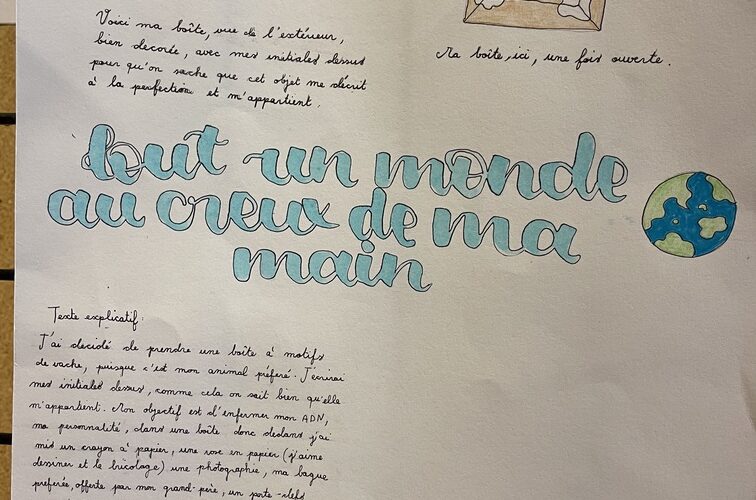 Voici ma boîte, vue de l'extérieur,
bien decorée, avec mes initiales dessus
pour qu'on sache que cet objet me décrit
à la perfection et m'appartient.
Ma boîte, ici, une fois ouverte.
tout un monde
au creux de ma
main
Texte explicatif:
J'ai decidé de prendre une boîte à motifs
de vache, puisque c'est mon animal préferé. J'écrirai
mes initiales dessus, comme cela on sait bien qu'elle
m'appartient. Mon objectif est d'enfermer mon ADN,
ma personnalité, dans une boîte donc dedans j'ai
mis un crayon à papier, une rose en papier (j'aime
dessiner et le bricolage) une photographie, ma bague
preferée, offerte par mon grand-père, un porte-clefs